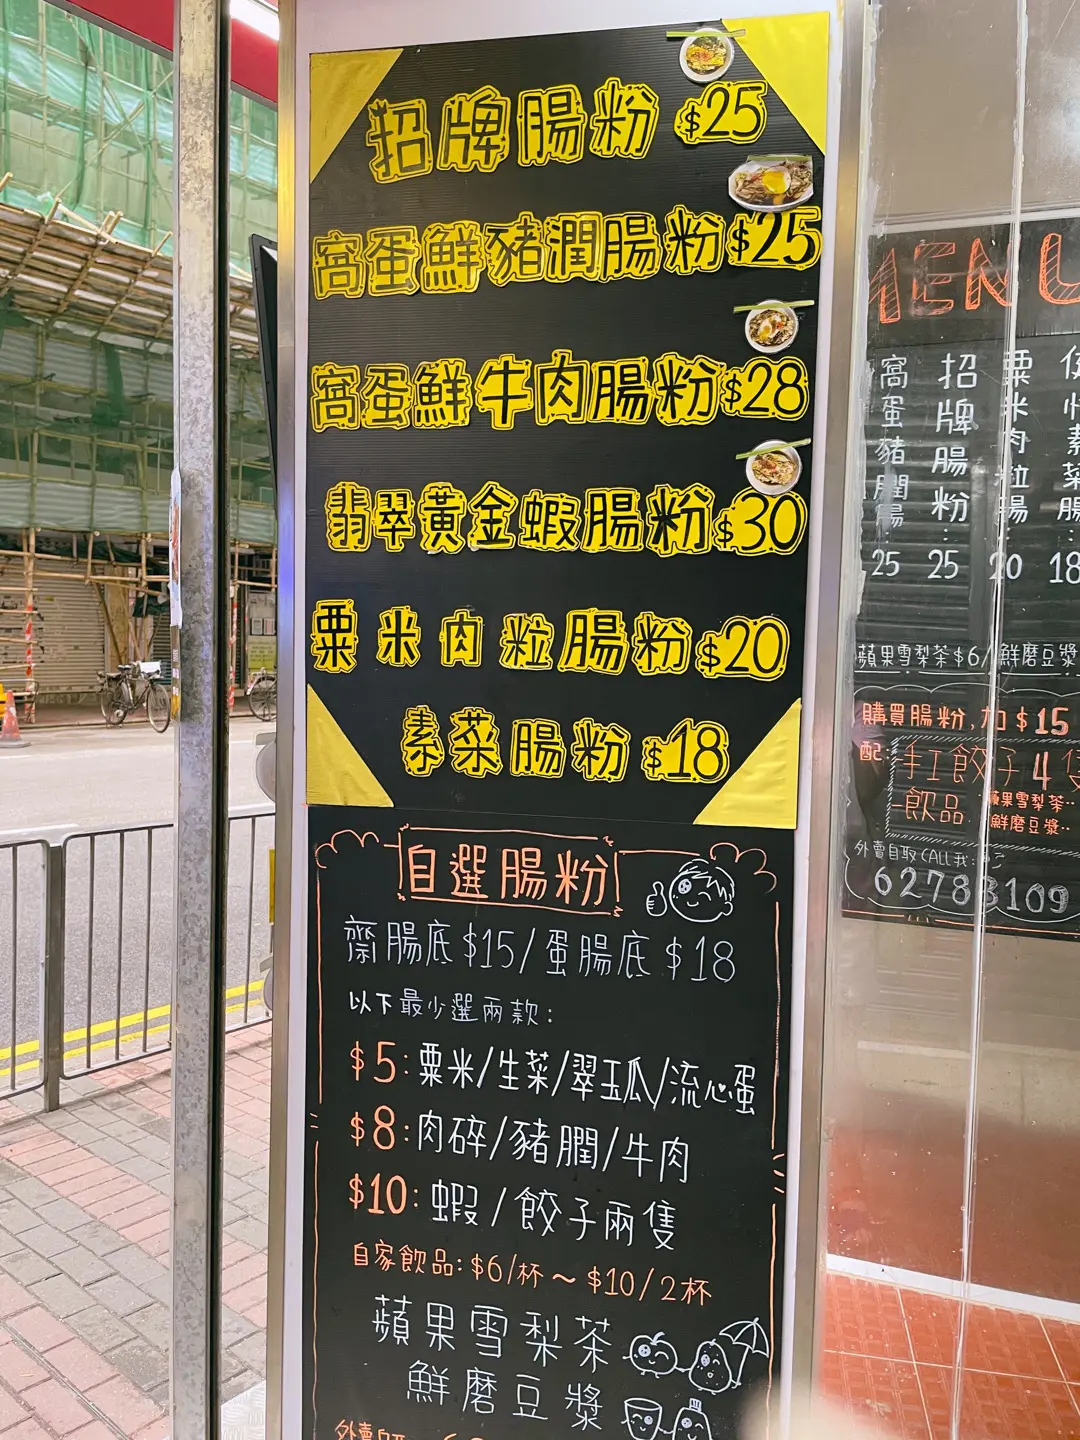 招牌腸粉 $25
窩蛋鮮豬潤腸粉 $25
窩蛋鮮牛肉腸粉 $28
翡翠黃金蝦腸粉 $30
粟米肉粒腸粉 $20
素菜腸粉 $18
自選腸粉
齋腸底 $15/蛋腸底 $18
以下最少選兩款:
$5:粟米/生菜/翠玉瓜/流心蛋
$8:肉碎/豬膶/牛肉
$10:蝦/餃子兩隻
自家飲品:$6/杯~$10/2杯
蘋果雪梨茶
鮮磨豆漿
外賣
MENU
窩蛋豬膶腸:25
招牌腸粉:25
粟米肉粒腸:20
素菜腸 18
蘋果雪梨茶$6/鮮磨豆漿
購買腸粉,加$15
配:手工餃子4隻
飲品 蘋果雪梨茶..
鮮磨豆漿..
外賣自取CALL我:
62783109